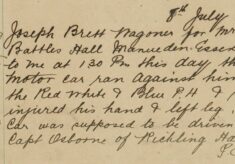 8th July
Joseph Brett Wagoner for Mr
Battles Hall Manueden
to me at 1.30 Pm this day th
motor car ran against him
the Red White & Blue P.H &
injured his hand & left leg
Car was supposed to be driven
Capt Osborne of Rickling Ha